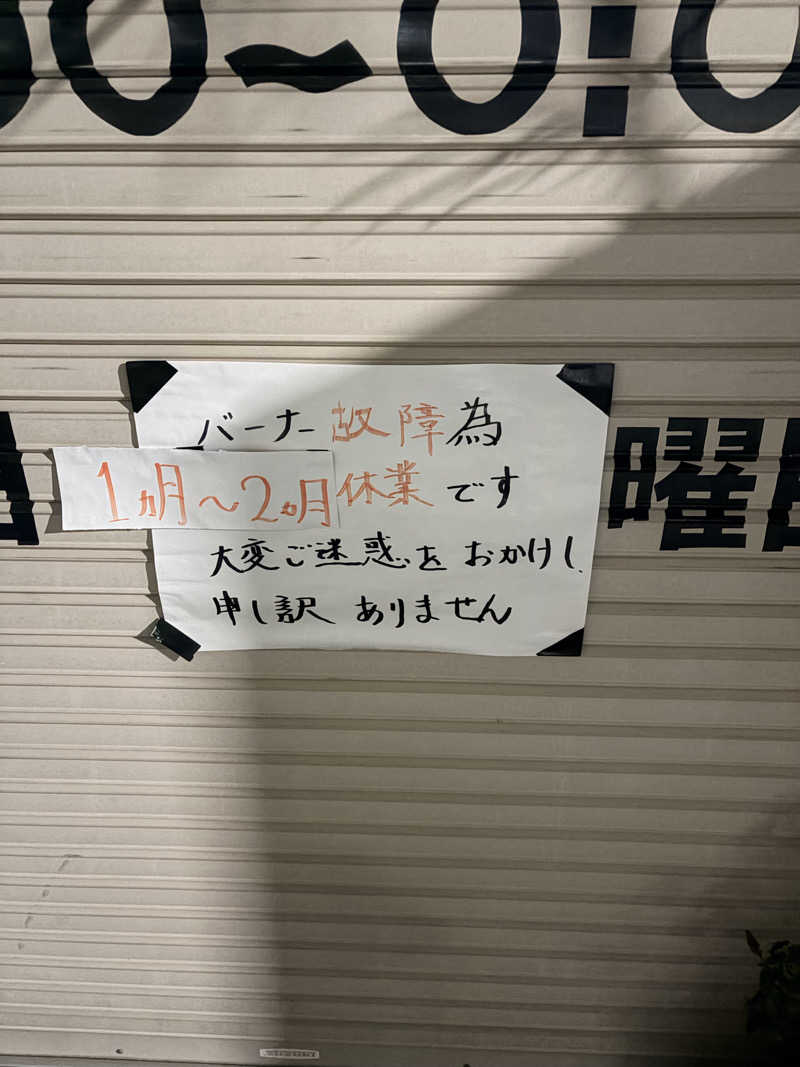 00～0:0
バーナー故障為
1ヵ月～2ヵ月休業です
大変ご迷惑をおかけし
申し訳ありません
曜日